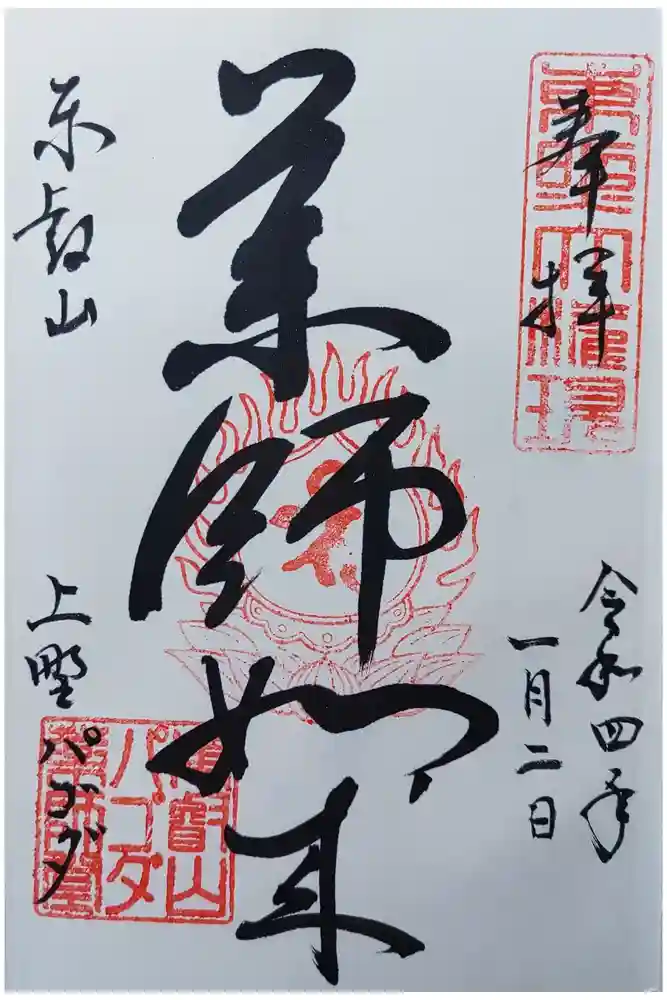 奉拝
東聖大権現
令和四年
一月二日
薬師如来
東叡山
上野パゴダ
東叡山
パゴダ
薬師堂